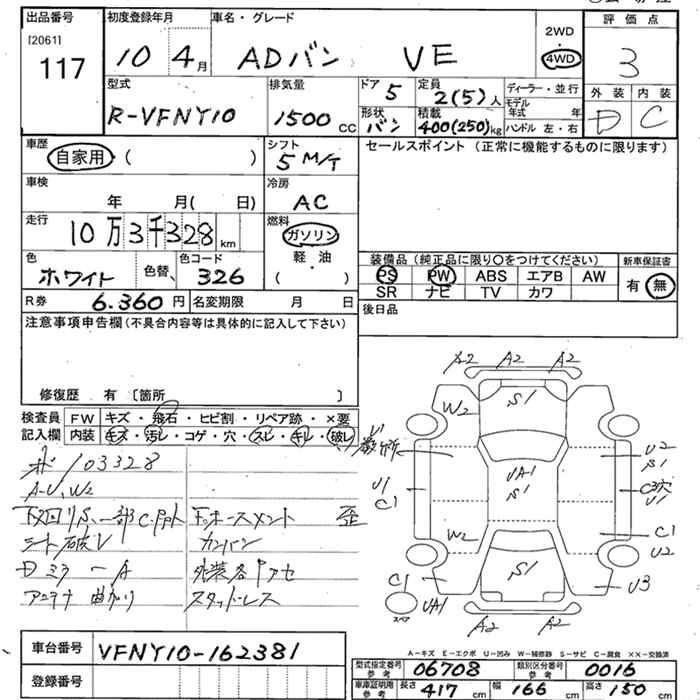 出品番号 [2061] 117
初度登録年月 10 4月
車名・グレード ADバン VE
2WD 4WD
評価点 3
外装 D 内装 C
型式 R-VFNY10
排気量 1500 CC
ドア 5
定員 2(5)人
形状 バン
積載 400(250)kg
ディーラー・並行
モデル年式 年
ハンドル 左・右
車歴 自家用 ( )
シフト 5 M/T
セールスポイント (正常に機能するものに限ります)
車検 年 月( 日)
冷房 AC
走行 10万3千328 km
燃料 ガソリン 軽油 ( )
色 ホワイト 色替、
色コード 326
装備品 (純正品に限り○をつけてください)
新車保証書 有 無
PS PW ABS エアB AW
SR ナビ TV カワ
R券 6.360円 名変期限 月 日
後日品
注意事項申告欄 (不具合内容等は具体的に記入して下さい)
修復歴 有 〔箇所 〕
検査員 FW キズ・飛石・ヒビ割・リペア跡・×要
記入欄 内装 キズ・汚レ・コゲ・穴・スレ・キレ・破レ
# 103328
A-U、W2
シート破レ カンバン
Dミラ-A
アンテナ曲がり スタッドレス
A2 A2 A2
S1
W2
U1
UA1
S1
U2
S1
U1
C1
C3穴
U1
C1
W2
U2
S1
C1
UA1
U3
スペア
A2 A2
A-キズ E-エクボ U-凹み W-補修跡 S-サビ C-腐食 ××-交換済
車台番号 VFNY10-162381
登録番号
型式指定番号 参考 06708
類別区分番号 参考 0016
車庫証明用 参考 長さ 417 cm 幅 166 cm 高さ 150 cm